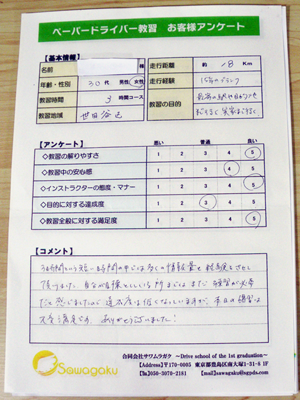 ペーパードライバー教習 お客様アンケート
【基本情報】
名前 様 走行距離 約 18 Km
年齢・性別 30代 男性・女性 走行経験 15年のブランク
教習時間 3 時間コース 教習の目的
教習地域 世田谷区
【アンケート】 悪い 普通 良い
◇教習の解りやすさ 1 2 3 4 5
◇教習中の安心感 1 2 3 4 5
◇インストラクターの態度・マナー 1 2 3 4 5
◇目的に対する達成度 1 2 3 4 5
◇教習全般に対する満足度 1 2 3 4 5
【コメント】
3時間という短い時間の中では多くの情報量を
頂けました。自分が目標としている所まではまだ練習が必要
だと感じましたので達成度は低くなっていますが、本日の講習は
大変満足です。ありがとうございました!
Sawagaku
合同会社サワムラガク ~Drive school of the 1st graduation~
【Address】〒170-0005 東京都豊島区南大塚1-31-3
【Tel】050-3070-2181 【Mail】sawagaku@sgpds.com